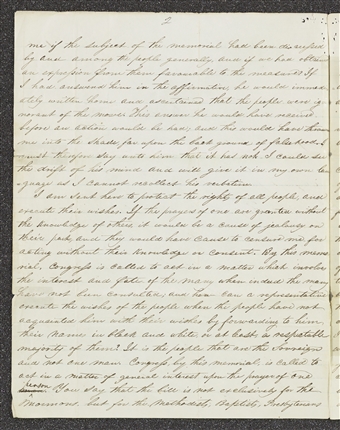 2
me if the subject of the memorial had been discussed
by and among the people generally, and if we had obtain
an expression from them favourable to the measure. If
I had answered him in the affirmative, he would immed
iately written home and ascertained that the people were ig-
norant of the move. This answer he would have received
before an action would be had, and this would have thrown
me into the shade far upon the back ground of falsehood. I
must therefore say unto him that it has not. I could see
the drift of his mind and will give it in my own lan
guage as I cannot recollect his verbatim
I am sent here to protect the rights of all people, and
execute their wishes. If the prayer of one are granted without
the knowledge of others it would be a cause of jealousy on
their part, and they would have cause to censure me for
acting without their knowledge or consent. By this memo
rial, Congress is called to act in a matter which involves
the interest and fate of the many when indeed the many
have not been consulted, and how can a representative
execute the wishes of the people when the people have not
acquainted him with their wishes by forwarding to him
their names in black and white or at least a respectable
majority of them? It is the people that are the sovereigns
and not one man. Congress by this memorial is called to
act in a matter of general interest upon the prayer of one
person
You say that the bill is not exclusively for the
Mormons, but for the Methodists, Baptists, Presbyterians